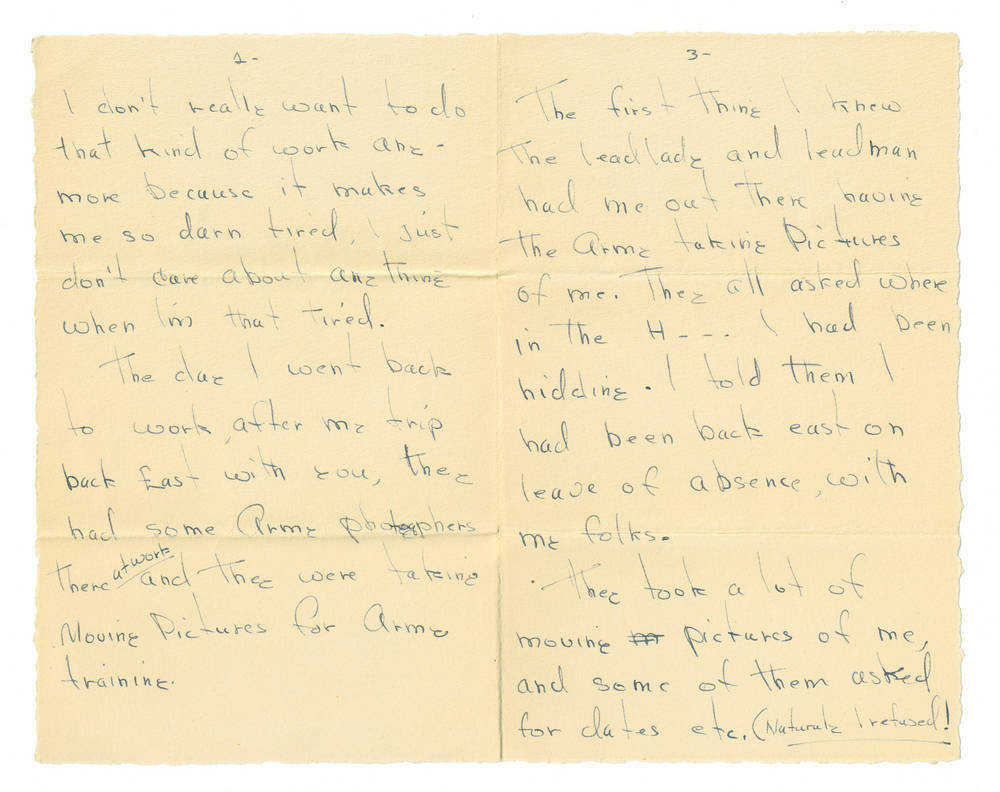 2-
I don't really want to do
that kind of work any-
more because it makes
me so darn tired, I just
don't care about anything
when I'm that tired.
The day I went back
to work, after my trip
back East with you, they
had some Army photogphers
There at work and they were taking
Moving Pictures for Army
training.
3-
The first thing I knew
The leadlady and leadman
had me out There having
The Army taking Pictures
of me. They all asked where
in The H--- I had been
hidding. I told them I
had been back east on
leave of absence, with
my folks.
They took a lot of
moving m pictures of me,
and some of them asked
for dates etc. (Naturaly I refused!